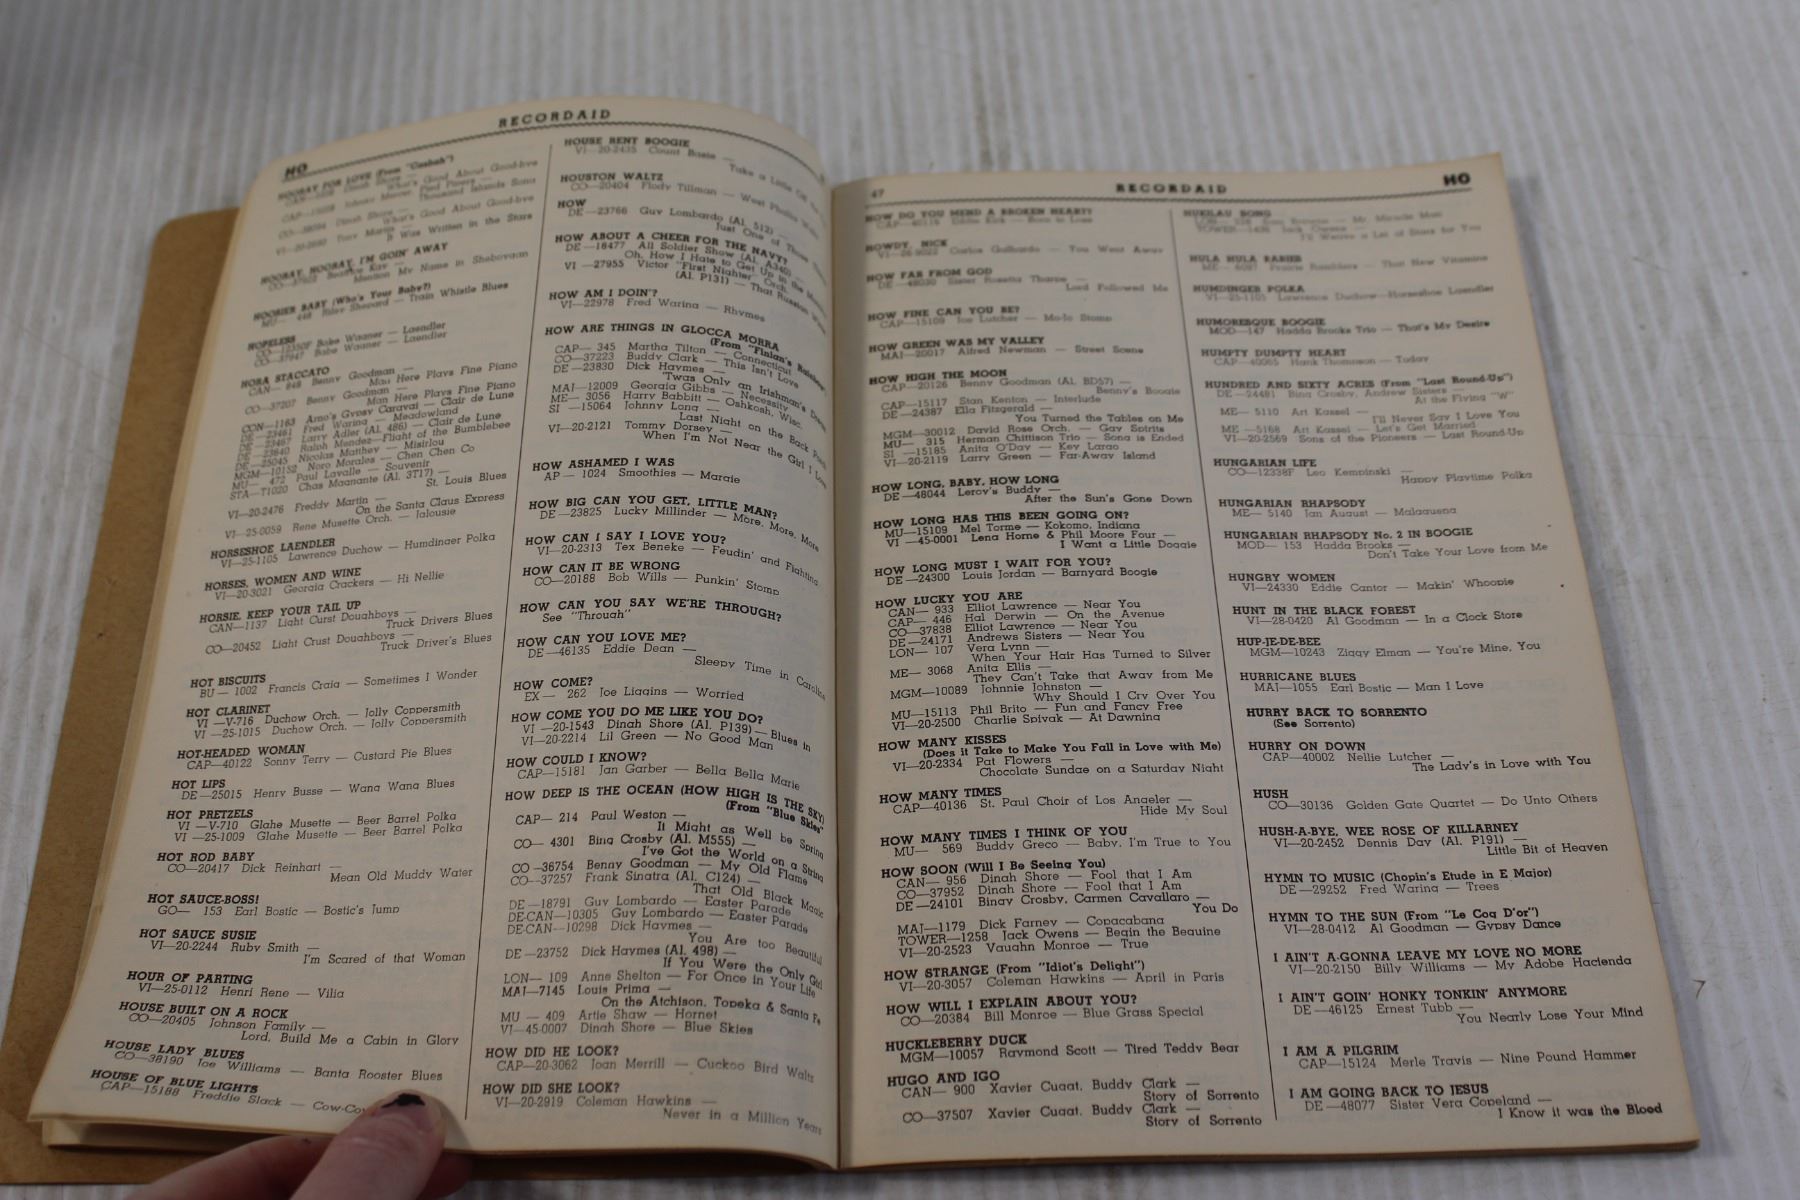 RECORDAID
HO
HOORAY FOR LOVE (From "Casbah")
What's Good About Good-bye
Thousand Islands Song
CO—38094 Dinah Shore —
What's Good About Good-bye
Tony Martin —
It Was Written in the Stars
HOORAY, HOORAY, I'M GOIN' AWAY
CO—37923 Beatrice Kay —
Mention My Name in Sheboygan
HOOSIER BABY (Who's Your Baby?)
MU— 448 Riley Shepard — Train Whistle Blues
HOPELESS
CO—12350F Babe Wagner — Laendler
CO—37947 Babe Wagner — Laendler
HORA STACCATO
CAN— 848 Benny Goodman —
Man Here Plays Fine Piano
CO—37207 Benny Goodman —
Man Here Plays Fine Piano
CON—1163 Arno's Gypsy Caravan — Clair de Lune
DE—23461 Fred Waring — Meadowland
DE—23467 Larry Adler (Al. 486) — Clair de Lune
DE—23840 Ralph Mendez—Flight of the Bumblebee
DE—25045 Nicolas Matthey — Misirlou
MGM—10152 Noro Morales — Chen Chen Co
MU— 472 Paul Lavalle — Souvenir
STA—T1020 Chas Magnante (Al. 3T17) —
St. Louis Blues
VI—20-2476 Freddy Martin —
On the Santa Claus Express
VI—25-0059 Rene Musette Orch. — Jalousie
HORSESHOE LAENDLER
VI—25-1105 Lawrence Duchow — Humdinger Polka
HORSES, WOMEN AND WINE
VI—20-3021 Georgia Crackers — Hi Nellie
HORSIE, KEEP YOUR TAIL UP
CAN—1137 Light Curst Doughboys —
Truck Drivers Blues
CO—20452 Light Crust Doughboys —
Truck Driver's Blues
HOT BISCUITS
BU— 1002 Francis Craig — Sometimes I Wonder
HOT CLARINET
VI —V-716 Duchow Orch. — Jolly Coppersmith
VI —25-1015 Duchow Orch. — Jolly Coppersmith
HOT-HEADED WOMAN
CAP—40122 Sonny Terry — Custard Pie Blues
HOT LIPS
DE—25015 Henry Busse — Wang Wang Blues
HOT PRETZELS
VI —V-710 Glahe Musette — Beer Barrel Polka
VI —25-1009 Glahe Musette — Beer Barrel Polka
HOT ROD BABY
CO—20417 Dick Reinhart —
Mean Old Muddy Water
HOT SAUCE-BOSS!
GO— 153 Earl Bostic — Bostic's Jump
HOT SAUCE SUSIE
VI—20-2244 Ruby Smith —
I'm Scared of that Woman
HOUR OF PARTING
VI—25-0112 Henri Rene — Vilia
HOUSE BUILT ON A ROCK
CO—20405 Johnson Family —
Lord, Build Me a Cabin in Glory
HOUSE LADY BLUES
CO—38190 Joe Williams — Banta Rooster Blues
HOUSE OF BLUE LIGHTS
CAP—15188 Freddie Slack — Cow-Co
HOUSE RENT BOOGIE
VI—20-2435 Count Basie —
Take a Little Off the
HOUSTON WALTZ
CO—20404 Flody Tillman — West
HOW
DE—23766 Guy Lombardo (Al. 512) —
Just One of Those
HOW ABOUT A CHEER FOR THE NAVY?
DE—18477 All Soldier Show (Al. A340) —
Oh, How I Hate to Get Up in the
VI —27955 Victor "First Nighter" Orch.
(Al. P131) — That Russian
HOW AM I DOIN'?
VI—22978 Fred Waring — Rhymes
HOW ARE THINGS IN GLOCCA MORRA
(From "Finian's Rainbow"
CAP— 345 Martha Tilton — Connecticut
CO—37223 Buddy Clark — This Isn't Love
DE—23830 Dick Haymes —
'Twas Only an Irishman's
MAJ—12009 Georgia Gibbs — Necessity
ME— 3056 Harry Babbitt — Oshkosh, Wisc.
SI —15064 Johnny Long —
Last Night on the Back
VI—20-2121 Tommy Dorsey —
When I'm Not Near the Girl I
HOW ASHAMED I WAS
AP — 1024 Smoothies — Margie
HOW BIG CAN YOU GET, LITTLE MAN?
DE—23825 Lucky Millinder — More, More, More
HOW CAN I SAY I LOVE YOU?
VI—20-2313 Tex Beneke — Feudin' and Fighting
HOW CAN IT BE WRONG
CO—20188 Bob Wills — Punkin' Stomp
HOW CAN YOU SAY WE'RE THROUGH?
See "Through"
HOW CAN YOU LOVE ME?
DE—46135 Eddie Dean —
Sleepy Time in Carolina
HOW COME?
EX— 262 Joe Liggins — Worried
HOW COME YOU DO ME LIKE YOU DO?
VI —20-1543 Dinah Shore (Al. P139) — Blues in
VI—20-2214 Lil Green — No Good Man
HOW COULD I KNOW?
CAP—15181 Jan Garber — Bella Bella Marie
HOW DEEP IS THE OCEAN (HOW HIGH IS THE SKY)
(From "Blue Skies"
CAP— 214 Paul Weston —
It Might as Well be Spring
CO— 4301 Bing Crosby (Al. M555) —
I've Got the World on a String
CO —36754 Benny Goodman — My Old Flame
CO—37257 Frank Sinatra (Al. C124) —
That Old Black Magic
DE—18791 Guy Lombardo — Easter Parade
DE-CAN—10305 Guy Lombardo — Easter Parade
DE-CAN—10298 Dick Haymes —
You Are too Beautiful
DE—23752 Dick Haymes (Al. 498) —
If You Were the Only Girl
LON— 109 Anne Shelton — For Once in Your Life
MAJ—7145 Louis Prima —
On the Atchison, Topeka & Santa Fe
MU — 409 Artie Shaw — Hornet
VI—45-0007 Dinah Shore — Blue Skies
HOW DID HE LOOK?
CAP—20-3062 Joan Merrill — Cuckoo Bird Waltz
HOW DID SHE LOOK?
VI—20-2919 Coleman Hawkins —
Never in a Million Years
47
RECORDAID
HO
HOW DO YOU MEND A BROKEN HEART?
CAP—40116 Eddie Kirk — Born to Lose
HOWDY, NICK
Carlos Gailhardo — You Went Away
HOW FAR FROM GOD
DE—48030 Sister Rosetta Tharpe —
Lord Followed Me
HOW FINE CAN YOU BE?
CAP—15109 Joe Lutcher — Mo-Jo Stomp
HOW GREEN WAS MY VALLEY
MAJ—20017 Alfred Newman — Street Scene
HOW HIGH THE MOON
CAP—20126 Benny Goodman (Al. BD57) —
Benny's Boogie
CAP—15117 Stan Kenton — Interlude
DE —24387 Ella Fitzgerald —
You Turned the Tables on Me
MGM—30012 David Rose Orch. — Gay Spirits
MU— 315 Herman Chittison Trio — Song is Ended
SI —15185 Anita O'Day — Key Largo
VI—20-2119 Larry Green — Far-Away Island
HOW LONG, BABY, HOW LONG
DE—48044 Leroy's Buddy —
After the Sun's Gone Down
HOW LONG HAS THIS BEEN GOING ON?
MU—15109 Mel Torme — Kokomo, Indiana
VI —45-0001 Lena Horne & Phil Moore Four —
I Want a Little Doggie
HOW LONG MUST I WAIT FOR YOU?
DE—24300 Louis Jordan — Barnyard Boogie
HOW LUCKY YOU ARE
CAN— 933 Elliot Lawrence — Near You
CAP— 446 Hal Derwin — On the Avenue
CO—37838 Elliot Lawrence — Near You
DE—24171 Andrews Sisters — Near You
LON— 107 Vera Lynn —
When Your Hair Has Turned to Silver
ME— 3068 Anita Ellis —
They Can't Take that Away from Me
MGM—10089 Johnnie Johnston —
Why Should I Cry Over You
MU—15113 Phil Brito — Fun and Fancy Free
VI—20-2500 Charlie Spivak — At Dawning
HOW MANY KISSES
(Does it Take to Make You Fall in Love with Me)
VI—20-2334 Pat Flowers —
Chocolate Sundae on a Saturday Night
HOW MANY TIMES
CAP—40136 St. Paul Choir of Los Angeler —
Hide My Soul
HOW MANY TIMES I THINK OF YOU
MU— 569 Buddy Greco — Baby, I'm True to You
HOW SOON (Will I Be Seeing You)
CAN— 956 Dinah Shore — Fool that I Am
CO—37952 Dinah Shore — Fool that I Am
DE —24101 Bingy Crosby, Carmen Cavallaro —
You Do
MAJ—1179 Dick Farney — Copacabana
TOWER—1258 Jack Owens — Begin the Beguine
VI—20-2523 Vaughn Monroe — True
HOW STRANGE (From "Idiot's Delight")
VI—20-3057 Coleman Hawkins — April in Paris
HOW WILL I EXPLAIN ABOUT YOU?
CO—20384 Bill Monroe — Blue Grass Special
HUCKLEBERRY DUCK
MGM—10057 Raymond Scott — Tired Teddy Bear
HUGO AND IGO
CAN— 900 Xavier Cugat, Buddy Clark —
Story of Sorrento
CO—37507 Xavier Cugat, Buddy Clark —
Story of Sorrento
HUKILAU SONG
Mr. Miracle Man
TOWER—1436 Jack Owens —
I'll Weave a Lei of Stars for You
HULA HULA RABIES
ME— 6097 Prairie Ramblers — That New Vitamine
HUMDINGER POLKA
VI—25-1105 Lawrence Duchow—Horseshoe Laendler
HUMORESQUE BOOGIE
MOD—147 Hadda Brooks Trio — That's My Desire
HUMPTY DUMPTY HEART
CAP—40065 Hank Thompson — Today
HUNDRED AND SIXTY ACRES (From "Last Round-Up")
DE—24481 Bing Crosby, Andrew Sisters —
At the Flying "W"
ME— 5110 Art Kassel —
I'll Never Say I Love You
ME —5168 Art Kassel — Let's Get Married
VI—20-2569 Sons of the Pioneers — Last Round-Up
HUNGARIAN LIFE
CO—12338F Leo Kempinski —
Happy Playtime Polka
HUNGARIAN RHAPSODY
ME— 5140 Jan August — Malaguena
HUNGARIAN RHAPSODY No. 2 IN BOOGIE
MOD— 153 Hadda Brooks —
Don't Take Your Love from Me
HUNGRY WOMEN
VI—24330 Eddie Cantor — Makin' Whoopie
HUNT IN THE BLACK FOREST
VI—28-0420 Al Goodman — In a Clock Store
HUP-JE-DE-BEE
MGM—10243 Ziggy Elman — You're Mine, You
HURRICANE BLUES
MAJ—1055 Earl Bostic — Man I Love
HURRY BACK TO SORRENTO
(See Sorrento)
HURRY ON DOWN
CAP—40002 Nellie Lutcher —
The Lady's in Love with You
HUSH
CO—30136 Golden Gate Quartet — Do Unto Others
HUSH-A-BYE, WEE ROSE OF KILLARNEY
VI—20-2452 Dennis Day (Al. P191) —
Little Bit of Heaven
HYMN TO MUSIC (Chopin's Etude in E Major)
DE—29252 Fred Waring — Trees
HYMN TO THE SUN (From "Le Coq D'or")
VI—28-0412 Al Goodman — Gypsy Dance
I AIN'T A-GONNA LEAVE MY LOVE NO MORE
VI—20-2150 Billy Williams — My Adobe Hacienda
I AIN'T GOIN' HONKY TONKIN' ANYMORE
DE—46125 Ernest Tubb —
You Nearly Lose Your Mind
I AM A PILGRIM
CAP—15124 Merle Travis — Nine Pound Hammer
I AM GOING BACK TO JESUS
DE —48077 Sister Vera Copeland —
I Know it was the Blood